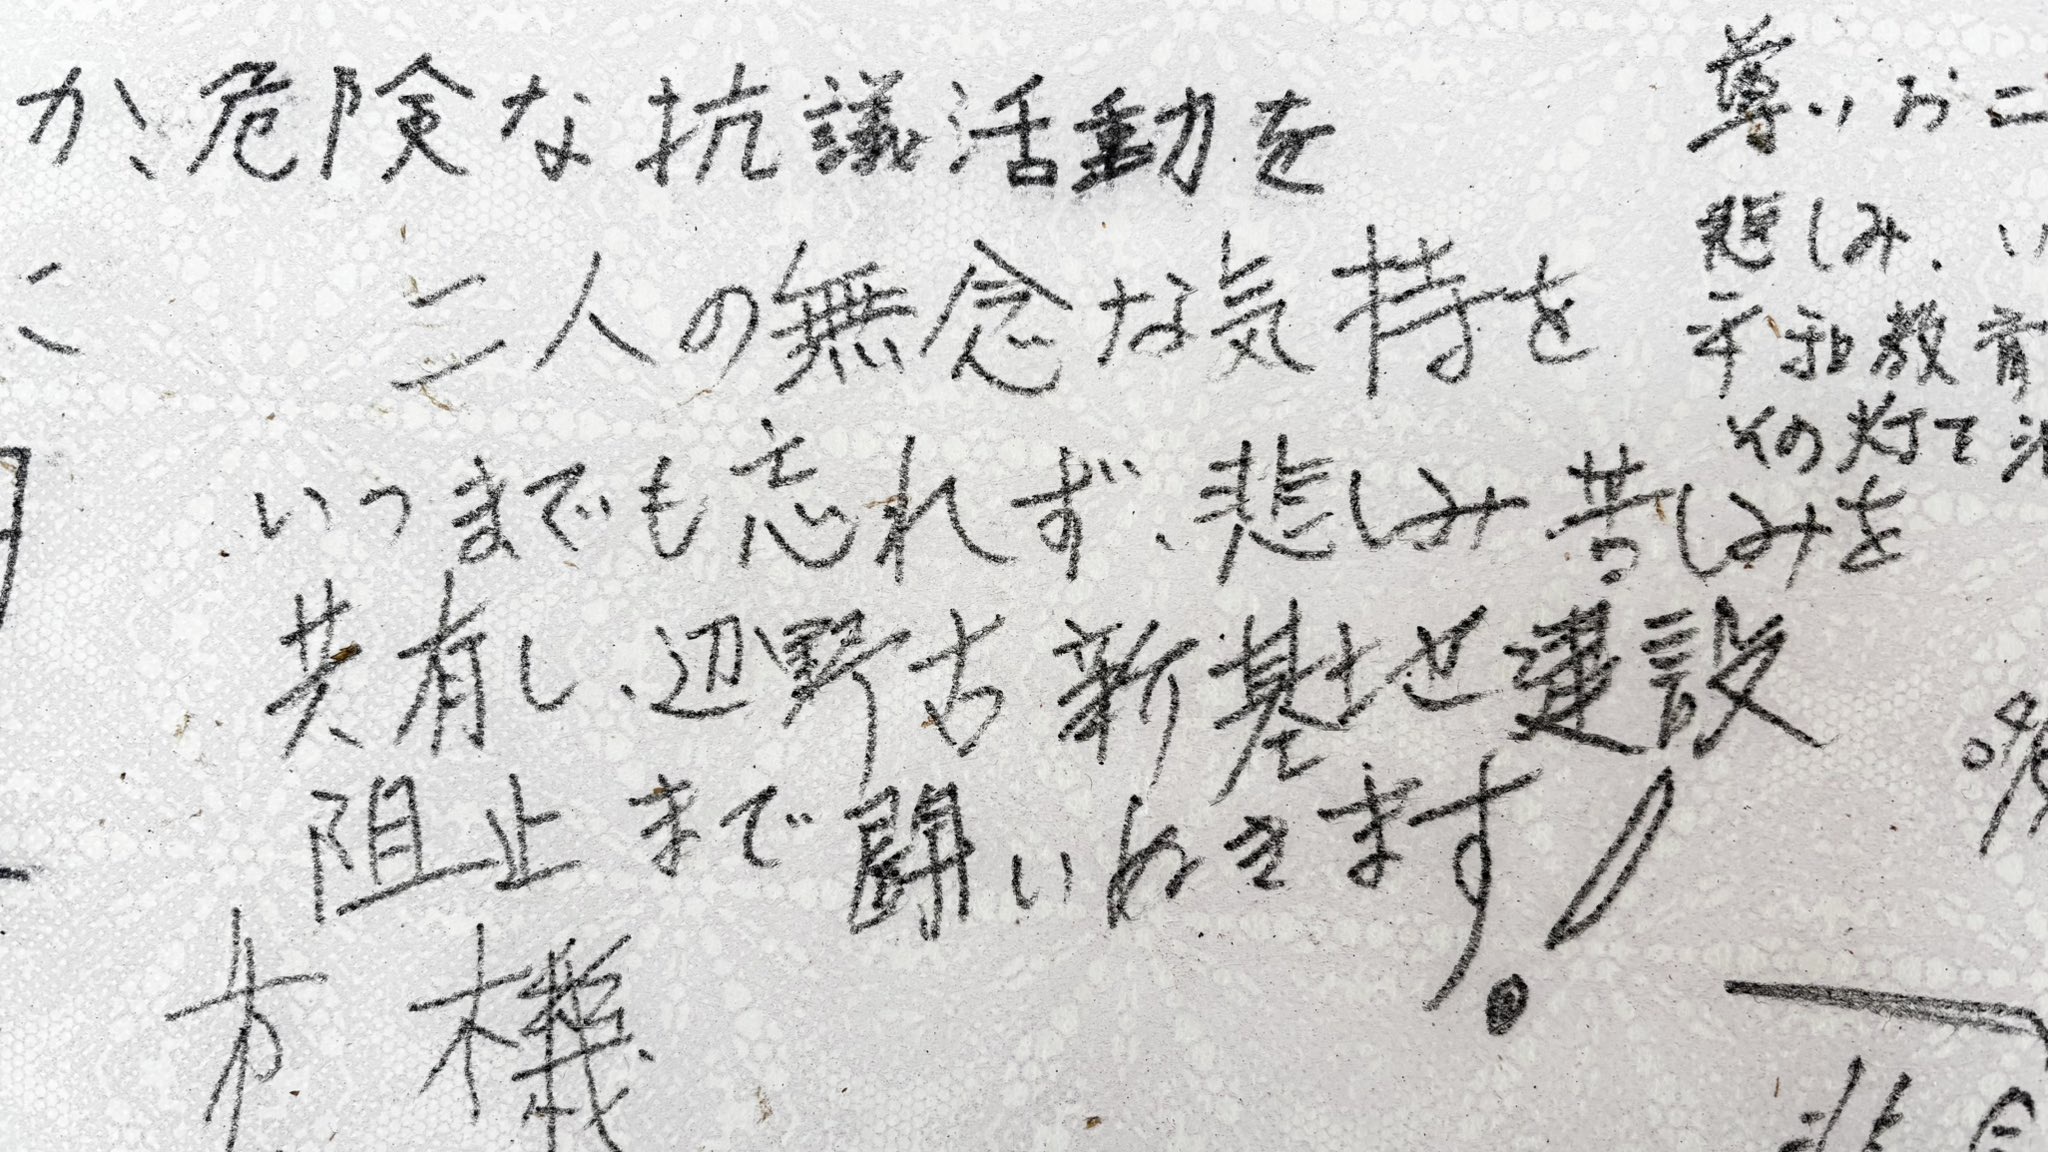 が、危険な抗議活動を
二人の無念な気持を
いつまでも忘れず、悲しみ苦しみを
共有し、辺野古新基地建設
阻止まで闘いぬきます!
機
尊いお二
悲しみ、い
平和教育
その灯て消